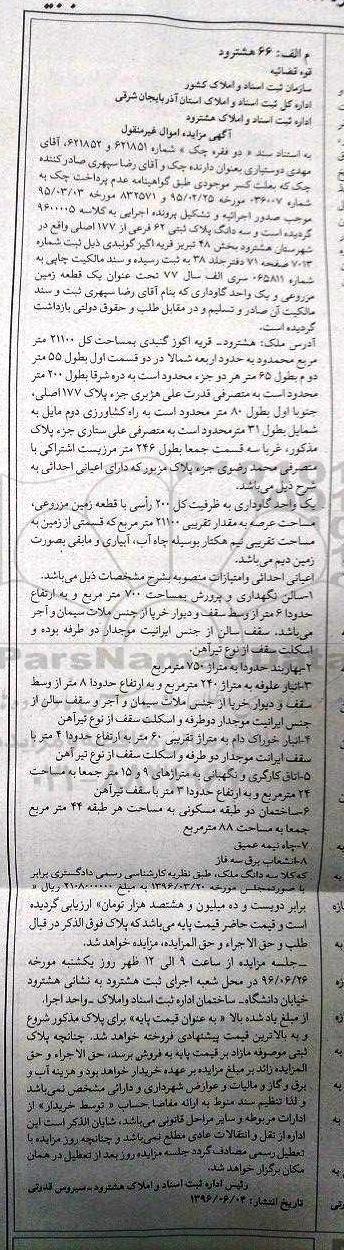 م الف: ۶۶ هشترود
قوه قضائیه
سازمان ثبت اسناد و املاک کشور
اداره کل ثبت اسناد و املاک استان آذربایجان شرقی
اداره ثبت اسناد و املاک هشترود
آگهی مزایده اموال غیرمنقول
به استناد سند « دو فقره چک » شماره ۶۲۱۸۵۱ و ۶۲۱۸۵۲، آقای
مهدی دوستیاری بعنوان دارنده چک و آقای رضا سپهری صادرکننده
چک که بعلت کسر موجودی طبق گواهینامه عدم پرداخت چک به
شماره ۰۳۶۰۰۷ مورخه ۹۵/۰۲/۲۵ و ۸۳۲۵۷۱ مورخه ۹۵/۰۳/۰۳
موجب صدور اجرائیه و تشکیل پرونده اجرایی به کلاسه ۹۶۰۰۰۰۵
گردیده است و سه دانگ پلاک ثبتی ۶۲ فرعی از ۱۷۷ اصلی واقع در
شهرستان هشترود بخش ۴۸ تبریز قریه اگیز گونبدی ذیل ثبت شماره
۷۰۱۳ صفحه ۷۱ دفتر جلد ۳۸ به ثبت رسیده و سند مالکیت چاپی به
شماره ۰۶۵۸۱۱ سری الف سال ۷۷ تحت عنوان یک قطعه زمین
مزروعی و یک واحد گاوداری که بنام آقای رضا سپهری ثبت و سند
مالکیت آن صادر و تسلیم و در مقابل طلب و حقوق دولتی بازداشت
گردیده است.
آدرس ملک: هشترود- قریه اکوز گنبدی بمساحت کل ۲۱۱۰۰ متر
مربع محمدود به حدود اربعه شمالا در دو قسمت اول بطول ۵۵ متر
دوم بطول ۶۵ متر هر دو جزء محدود است به دره شرقا بطول ۲۰۰ متر
محدود است به متصرفی قدرت علی هژبری جزء پلاک ۱۷۷ اصلی،
جنوبا اول بطول ۸۰ متر محدود است به راه کشاورزی دوم مایل به
شمال بطول ۳۱ متر محدود است به متصرفی علی ستاری جزء پلاک
مذکور، غربا سه قسمت جمعا بطول ۲۴۶ متر مرزیست اشتراکی با
متصرفی محمد رضوی جزء پلاک مزبور که دارای اعیانی احداثی به
شرح ذیل می باشد.
یک واحد گاوداری به ظرفیت کل ۲۰۰ رأسی با قطعه زمین مزروعی،
مساحت عرصه به مقدار تقریبی ۲۱۱۰۰ متر مربع که قسمتی از زمین به
مساحت تقریبی نیم هکتار بوسیله چاه آب، آبیاری و مابقی بصورت
زمین دیم می باشد.
اعیانی احداثی وامتیازات منصوبه بشرح مشخصات ذیل می باشد.
۱-سالن نگهداری و پرورش بمساحت ۷۰۰ متر مربع و به ارتفاع
حدودا ۶ متر از وسط سقف و دیوار خرپا از جنس ملات سیمان و آجر
می باشد. سقف سالن از جنس ایرانیت موجدار دو طرفه بوده و
اسکلت سقف از نوع تیرآهن.
۲-بهاربند حدودا به متراژ ۷۵۰ مترمربع
۳-انبار علوفه به متراژ ۲۴۰ مترمربع و به ارتفاع حدودا ۸ متر از وسط
سقف و دیوار خرپا از جنس ملات سیمان و آجر و سقف سالن از
جنس ایرانیت موجدار دوطرفه و اسکلت سقف از نوع تیرآهن
۴-انبار خوراک دام به متراژ تقریبی ۶۰ متر به ارتفاع حدودا ۴ متر با
سقف ایرانت موجدار دو طرفه و اسکلت سقف از نوع تیر آهن
۵-اتاق کارگری و نگهبانی به متراژهای ۹ و ۱۵ متر جمعا به مساحت
۲۴ مترمربع و به ارتفاع حدودا ۳ متر با سقف تیرآهن
۶-ساختمان دو طبقه مسکونی به مساحت هر طبقه ۴۴ متر مربع
جمعا به مساحت ۸۸ مترمربع
۷-چاه نیمه عمیق
۸-انشعاب برق سه فاز
که کلا سه دانگ ملک، طبق نظریه کارشناسی رسمی دادگستری برابر
با صورتمجلس مورخه ۱۳۹۶/۰۳/۲۰ به مبلغ ۲۱۰۸۰۰۰۰۰۰ ریال «
برابر دویست و ده میلیون و هشتصد هزار تومان» ارزیابی گردیده
است و قیمت حاضر قیمت پایه می باشد که پلاک فوق الذکر در قبال
طلب و حق الا جراء و حق المزایده، مزایده خواهد شد.
-جلسه مزایده از ساعت ۹ الی ۱۲ ظهر روز یکشنبه مورخه
۹۶/۰۶/۲۶ در محل شعبه اجرای ثبت هشترود به نشانی هشترود
خیابان دانشگاه- ساختمان اداره ثبت اسناد واملاک - واحد اجرا،
از مبلغ یاد شده بالا « به عنوان قیمت پایه» برای پلاک مذکور شروع
و به بالاترین قیمت پیشنهادی فروخته خواهد شد. چنانچه پلاک
ثبتی موصوفه مازاد بر قیمت پایه به فروش برسد، حق الا جراء و حق
المزایده زائد بر مبلغ مزایده بر عهده خریدار خواهد بود و هزینه آب و
برق و گاز و مالیات و عوارض شهرداری و دارائی مشخص نمی باشد
و لذا تنظیم سند منوط به ارائه مفاصا حساب « توسط خریدار» از
ادارات مربوطه و سایر مراحل قانونی می باشد، شایان الذکر است این
اداره از نقل و انتقالات عادی مطلع نمی باشد و چنانچه روز مزایده با
تعطیل رسمی مصادف گردد جلسه مزایده روز بعد از تعطیل در همان
مکان برگزار خواهد شد.
رئیس اداره ثبت اسناد و املاک هشترود -سیروس قدرتی
تاریخ انتشار: ۱۳۹۶/۰۶/۰۴